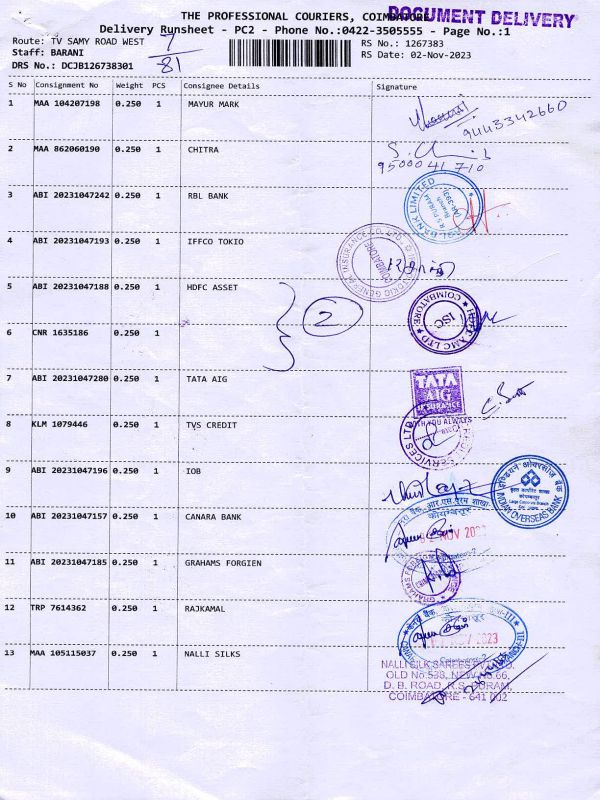 THE PROFESSIONAL COURIERS, COIMBATORE
DOCUMENT DELIVERY
Delivery Runsheet - PC2 - Phone No.:0422-3505555 - Page No.:1
Route: TV SAMY ROAD WEST
7
RS No.: 1267383
Staff: BARANI
RS Date: 02-Nov-2023
DRS No.: DCJB126738301
81
S No Consignment No Weight PCS Consignee Details Signature
1 MAA 104207198 0.250 1 MAYUR MARK
9443342660
2 MAA 862060190 0.250 1 CHITRA
95000 41 710
3 ABI 20231047242 0.250 1 RBL BANK
RBL BANK LIMITED
R S PURAM
Branch
4 ABI 20231047193 0.250 1 IFFCO TOKIO
GENERAL INSURANCE CO. LTD.
COIMBATORE
5 ABI 20231047188 0.250 1 HDFC ASSET
2
HDFC AMC LTD
COIMBATORE
ISC
6 CNR 1635186 0.250 1
7 ABI 20231047280 0.250 1 TATA AIG
TATA
AIG
INSURANCE
WITH YOU ALWAYS
8 KLM 1079446 0.250 1 TVS CREDIT
SERVICES LTD
9 ABI 20231047196 0.250 1 IOB
INDIAN OVERSEAS BANK
10 ABI 20231047157 0.250 1 CANARA BANK
NOV
11 ABI 20231047185 0.250 1 GRAHAMS FORGIEN
12 TRP 7614362 0.250 1 RAJKAMAL
2023
13 MAA 105115037 0.250 1 NALLI SILKS
NALLI SILK SAREES PVT LTD.
OLD No.538, NEW No.66,
D. B. ROAD, R.S. PURAM,
COIMBATORE - 641 002